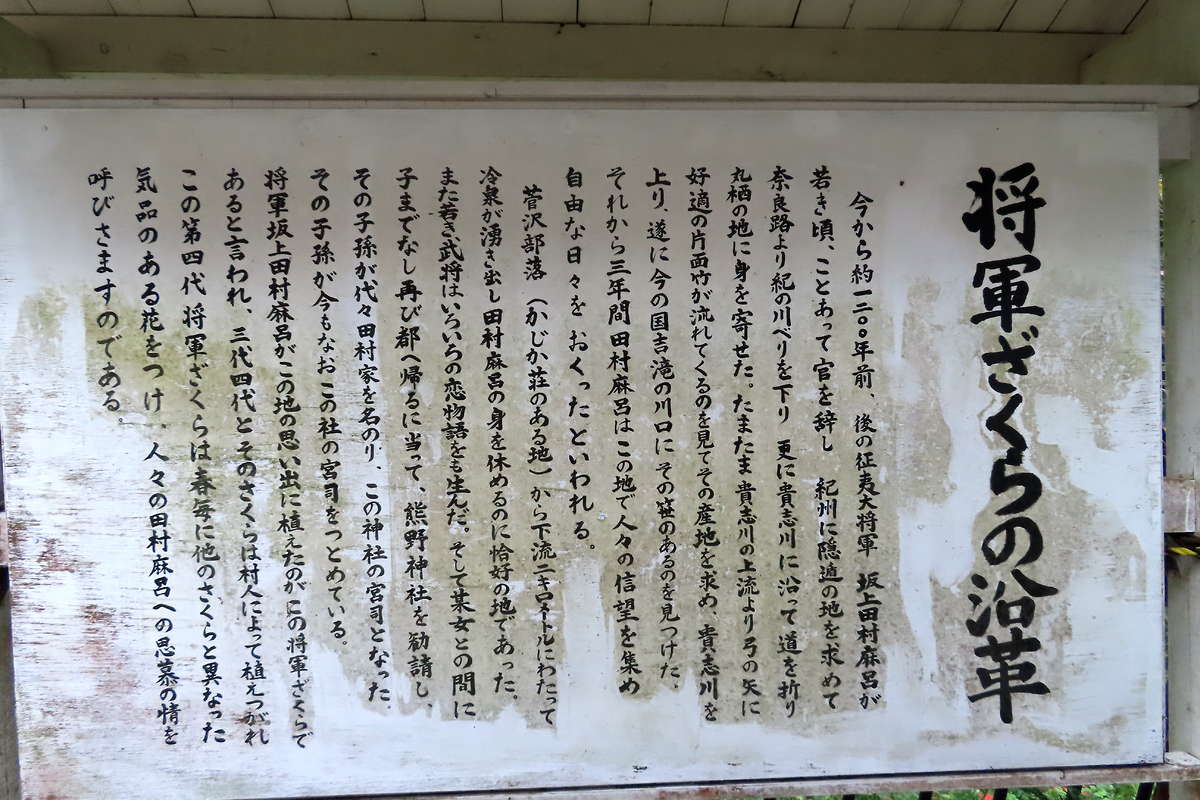 将軍ざくらの沿革
今から約一二〇〇年前、後の征夷大将軍 坂上田村麻呂が
若き頃、ことあって官を辞し 紀州に隠遁の地を求めて
奈良路より紀の川べりを下り 更に貴志川に沿って道を折り
丸栖の地に身を寄せた。たまたま貴志川の上流より弓の矢に
好適の片面竹が流れてくるのを見てその産地を求め、貴志川を
上り、遂に今の国吉滝の川口にその笹のあるのを見つけた、
それから三年間田村麻呂はこの地で人々の信望を集め
自由な日々を おくったといわれる。
菅沢部落（かじか荘のある地）から下流二キロメートルにわたって
冷泉が湧き出し田村麻呂の身を休めるのに恰好の地であった。
また若き武将はいろいろの恋物語をも生んだ。そして某女との間に
子までなし再び都へ帰るに当って、熊野神社を勧請し、
その子孫が代々田村家を名のり、この神社の宮司となった、
その子孫が今もなおこの社の宮司をつとめている。
将軍坂上田村麻呂がこの地の思い出に植えたのがこの将軍ざくらで
あると言われ、三代四代とそのさくらは村人によって植えつがれ
この第四代将軍ざくらは春毎に他のさくらと異なった
気品のある花をつけ、人々の田村麻呂への思慕の情を
呼びさますのである。